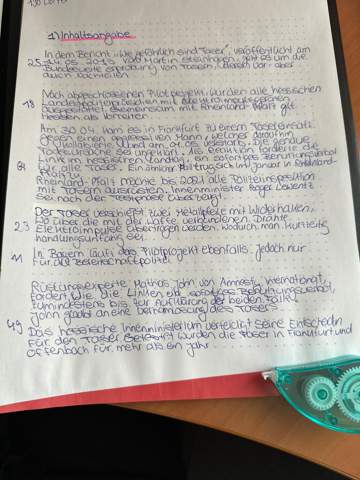 1) Inhaltsangabe
In dem Bericht „Wie gefährlich sind Taser", veröffentlicht am
14.05.2019 von Martin geht es um die
bundesweite Erprobung von Tasern, überdies Vor- aber
auch Nachteile.
Nach abgeschlossenem Pilotprojekt, wurden alle hessischen
18
ausgestattet. Gemeinsam mit Rheinland-Pfalz gilt
Hessen als Vorreiter.
Am 30.04. kam es in Frankfurt zu einem Tasereinsatz
gegen einen aggressiven Mann, welcher daraufhin
am 04.05 verstarb. Die genaue
Todesursache sei ungeklärt. Als Reaktion forderte die
Linke im hessischen Landtag, ein sofortiges Benutzungsverbot
für alle Taser. Ein ähnlicher im Januar in Rheinland-
Pfalz zu.
Rheinland-Pfalz möchte bis 2021 alle Polizeiinspektionen
mit Tasern ausrüsten. Innenminister Roger Lewentz
sei nach der Testphase überzeugt.
Der Taser verschießt zwei Metallpfeile mit Widerhaken,
wo über die mit der Luft verbundenen Drähte
23 Elektroimpulse übertragen werden. Wodurch man kurzzeitig
handlungsunfähig sei.
11 In Bayern läuft das Pilotprojekt ebenfalls. Jedoch nur
für die Bereitschaftspolizei.
Rüstungsexperte Mathias John von Amnesty International,
fordert wie die Linken ein sofortiges Benutzungsverbot,
zumindestens bis zur Aufklärung der beiden Fälle.
John glaubt an eine Verharmlosung des Tasers.
49 Das hessische Innenministerium verteidigt seine Entscheidung
für den Taser. Getestet wurden die Taser in Frankfurt und
Offenbach für mehr als ein Jahr.